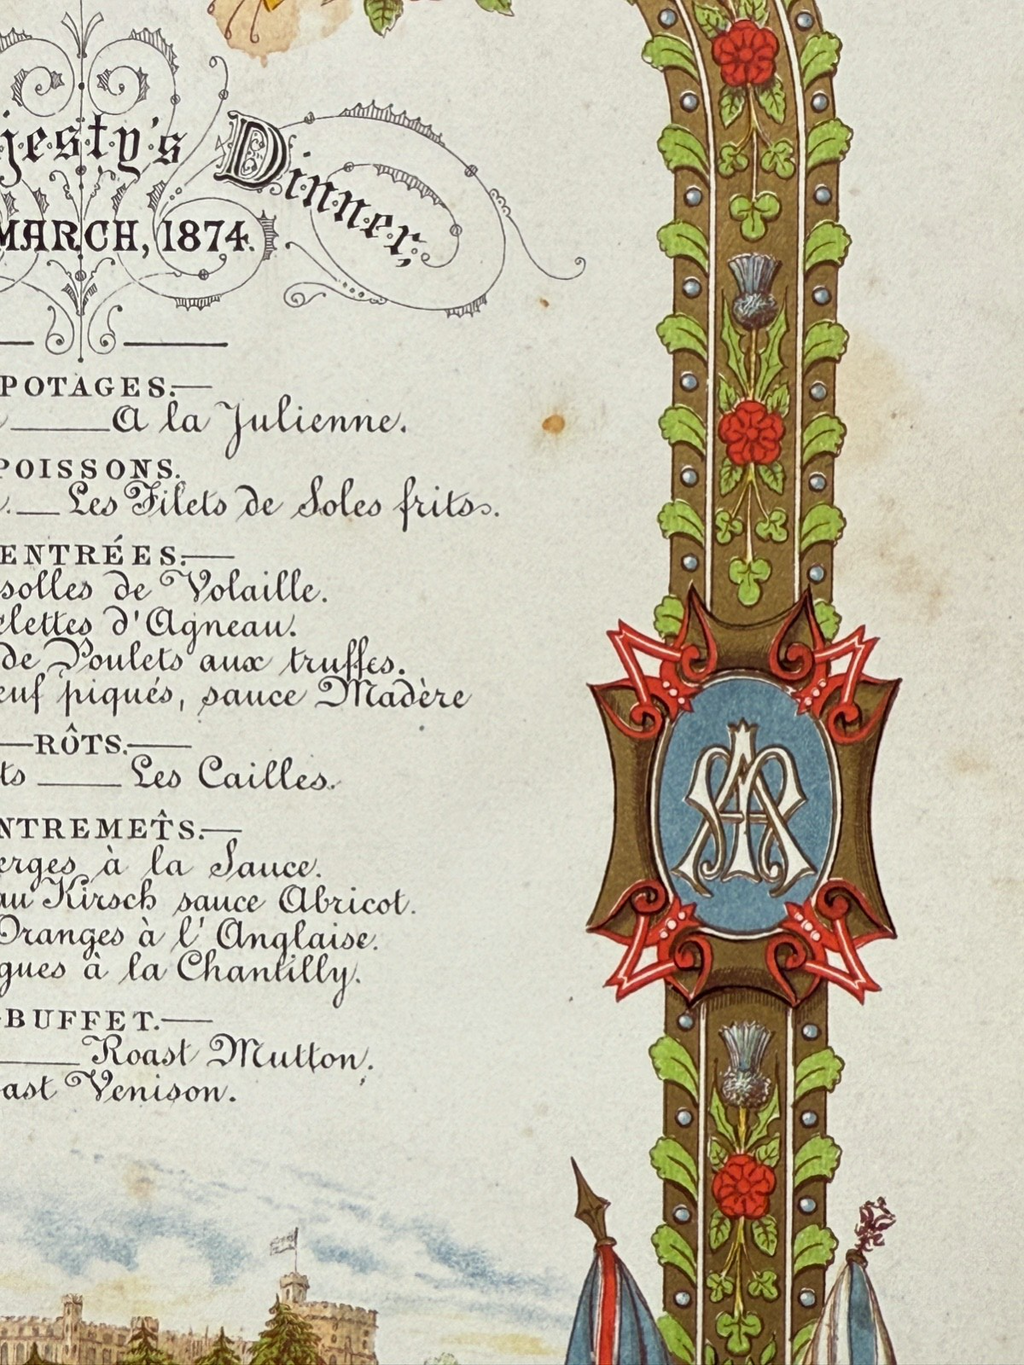 jesty's Dinner,
MARCH, 1874.
POTAGES.
A la Julienne.
POISSONS.
Les Filets de Soles frits.
ENTRÉES.
solles de Volaille.
elettes d'Agneau.
de Poulets aux truffes.
euf piqués, sauce Madère
RÔTS.
ts Les Cailles.
NTREMETS.
erges à la Sauce.
au Kirsch sauce Abricot.
Oranges à l'Anglaise.
gues à la Chantilly.
BUFFET.
Roast Mutton.
oast Venison.